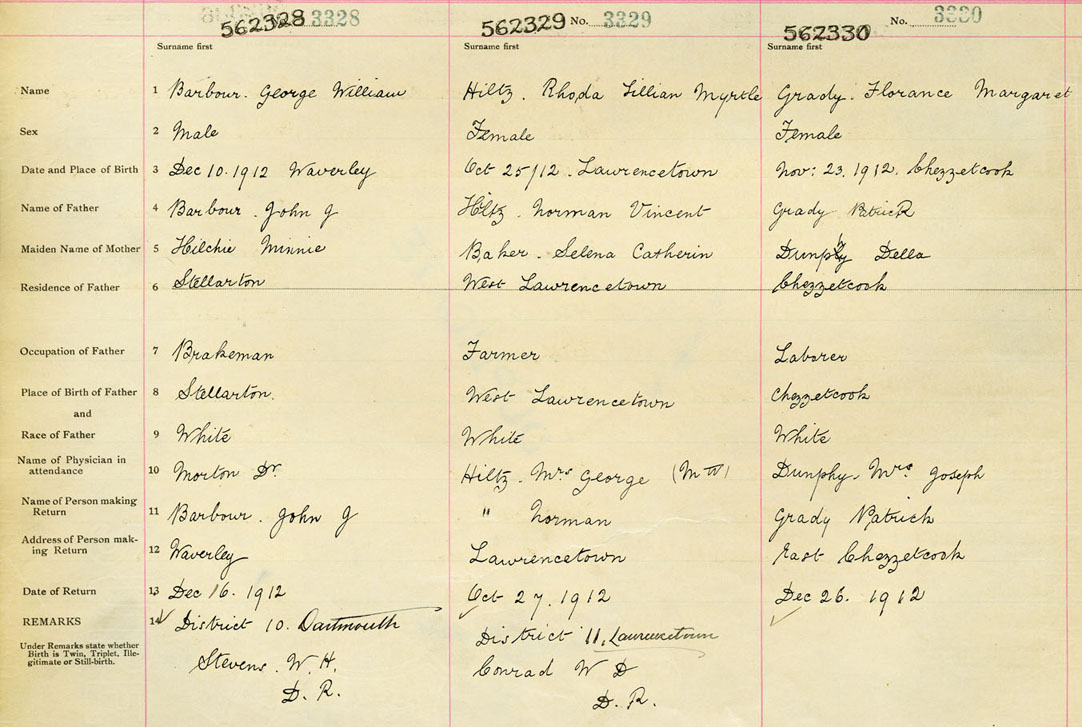 562328 3328 562329 No. 3329 562330 No. 3330
Surname first Surname first Surname first
Name 1 Barbour. George William Hiltz. Rhoda Lillian Myrtle Grady. Florance Margaret
Sex 2 Male Female Female
Date and Place of Birth 3 Dec 10. 1912 Waverley Oct 25/12. Lawrencetown Nov: 23. 1912. Chezzetcook
Name of Father 4 Barbour. John J Hiltz. Norman Vincent Grady Patrick
Maiden Name of Mother 5 Hilchie Minnie Baker. Selena Catherin Dunphy Della
Residence of Father 6 Stellarton West Lawrencetown Chezzetcook
Occupation of Father 7 Brakeman Farmer Laborer
Place of Birth of Father 8 Stellarton. West Lawrencetown Chezzetcook
and
Race of Father 9 White White White
Name of Physician in
attendance 10 Morton Dr. Hiltz. Mrs George (M W) Dunphy. Mrs Joseph
Name of Person making
Return 11 Barbour. John J " Norman Grady Patrick
Address of Person mak-
ing Return 12 Waverley Lawrencetown East Chezzetcook
Date of Return 13 Dec 16. 1912 Oct 27. 1912 Dec 26. 1912
REMARKS 14 District 10. Dartmouth District 11, Lawrencetown
Under Remarks state whether
Birth is Twin, Triplet, Ille-
gitimate or Still-birth.
Stevens. W. H. Conrad W D
D. R. D. R.